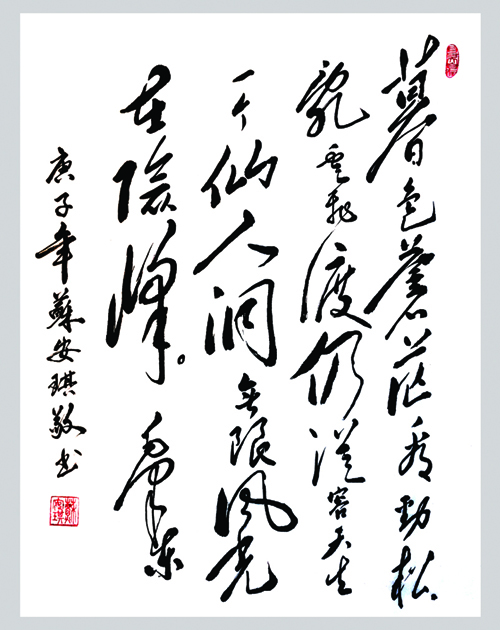 暮色蒼茫看勁松
亂雲飛渡仍從容天生
一个仙人洞無限風光
在險峰。毛澤東
庚子年蘇安琪敬书